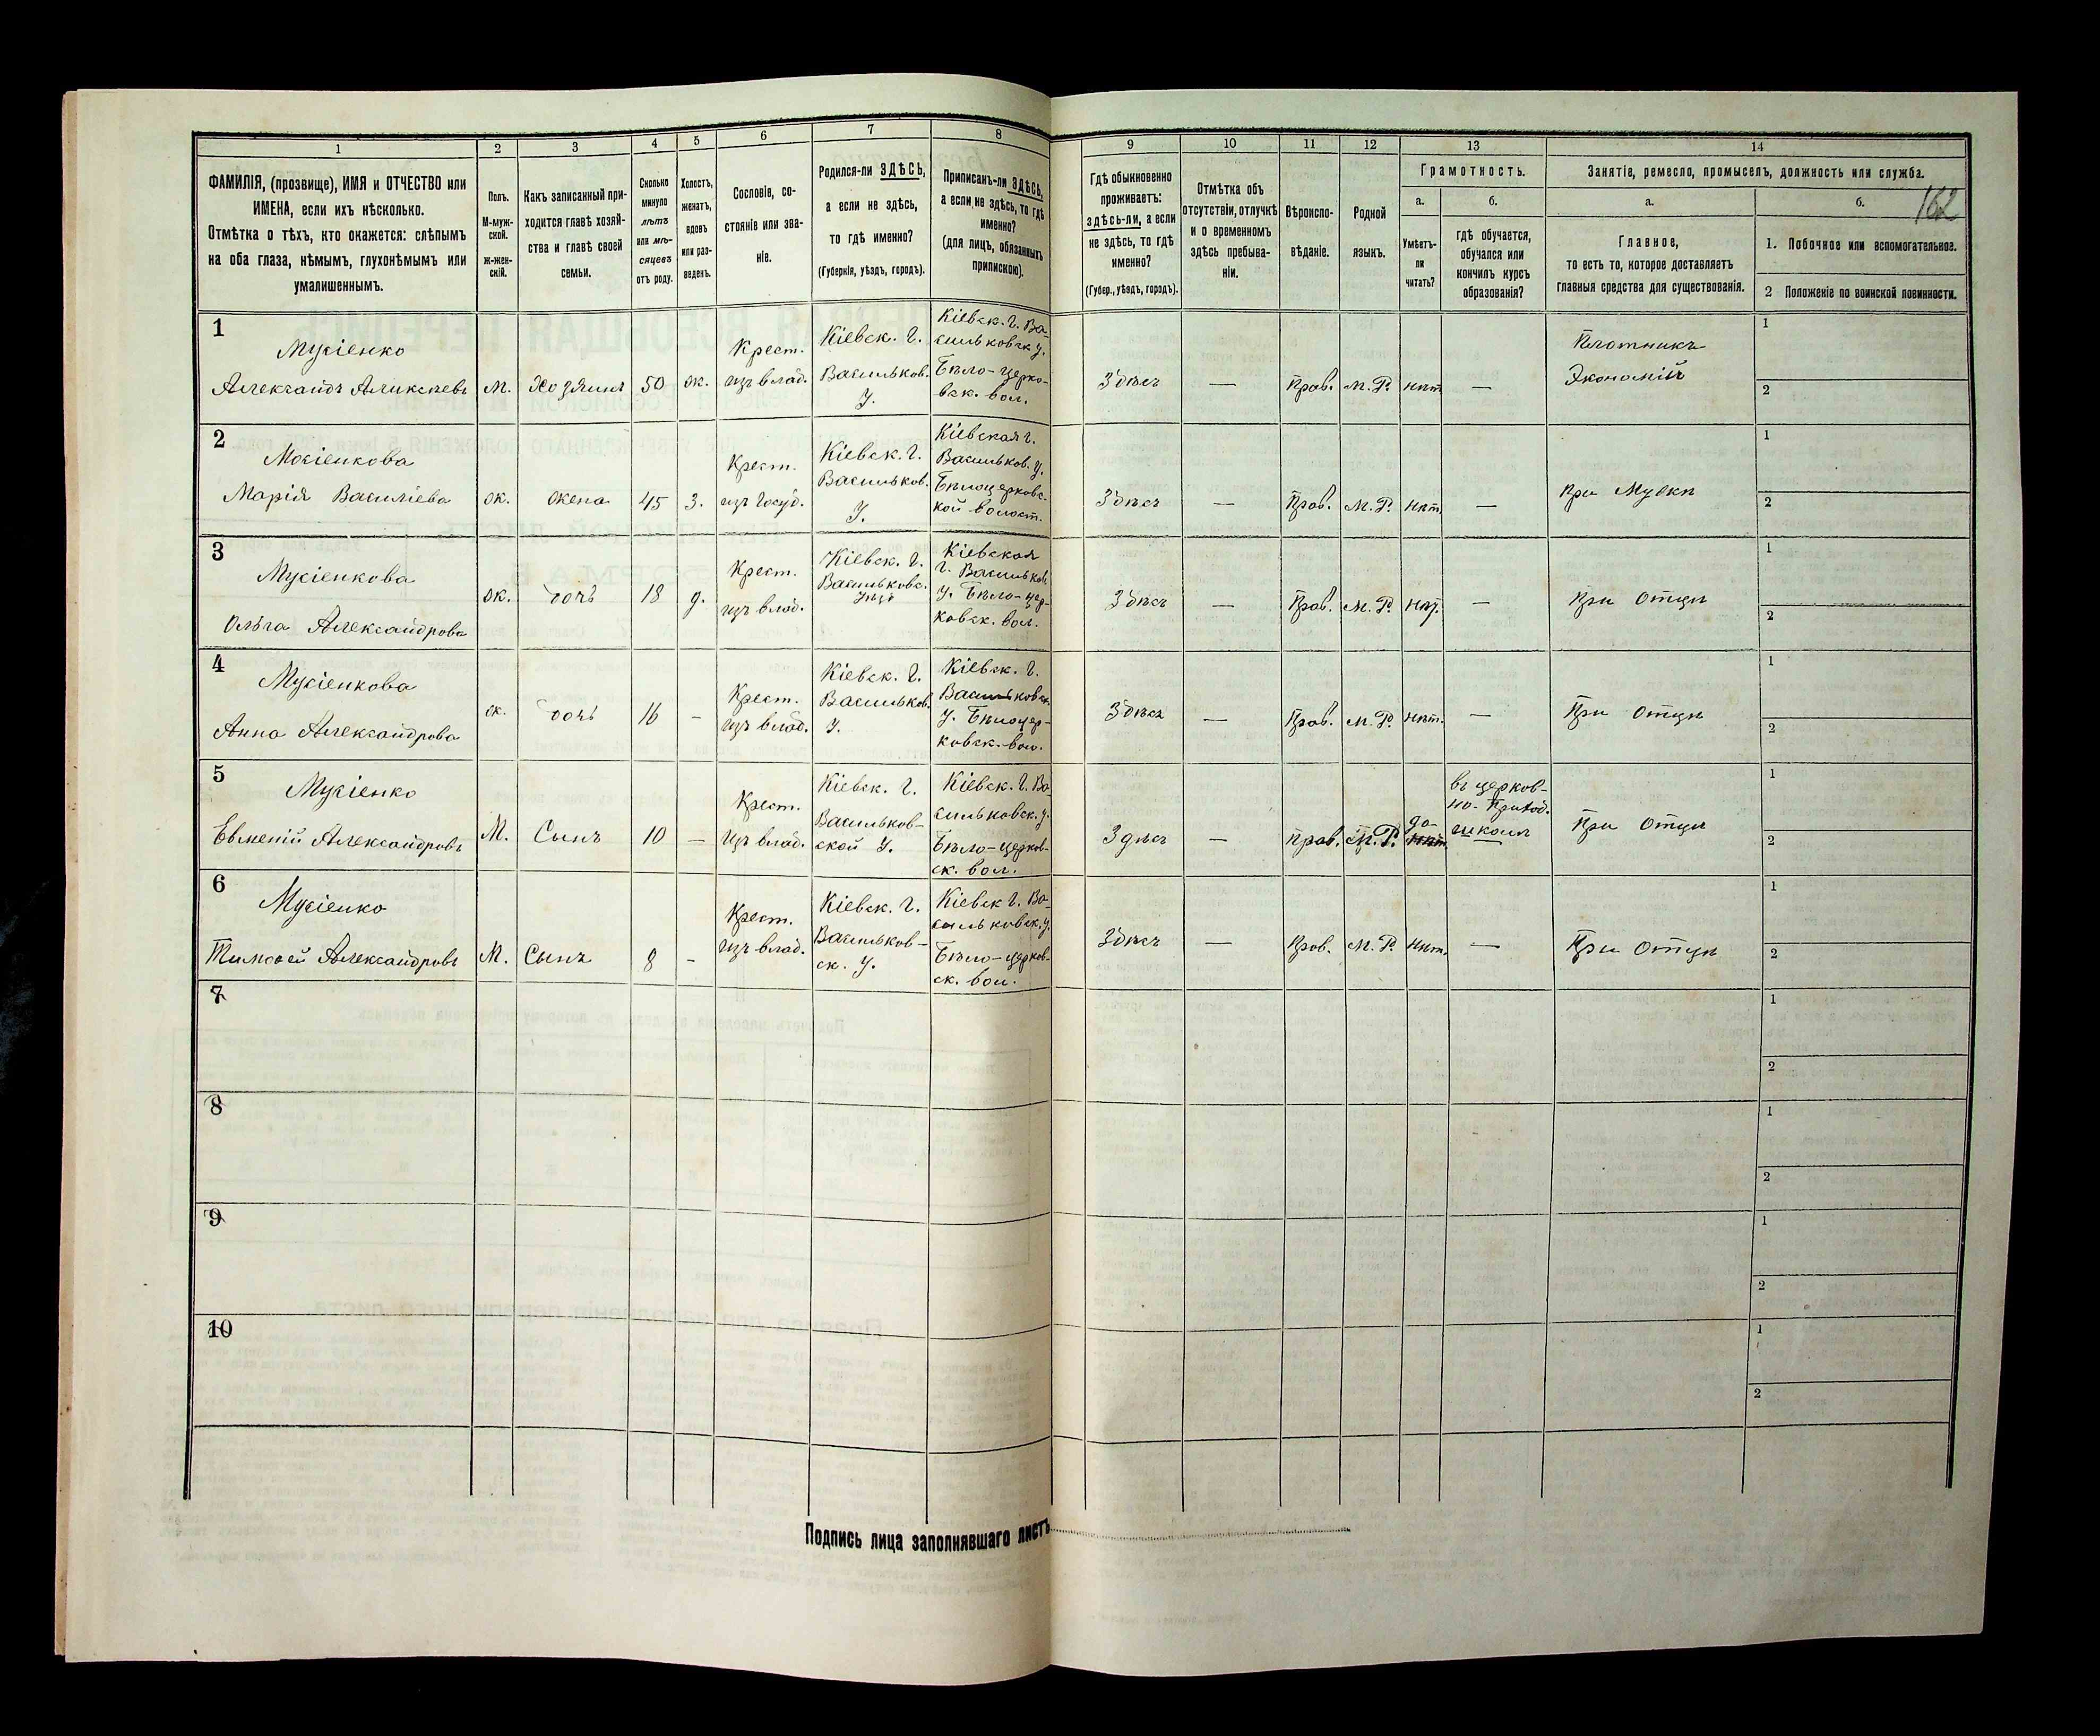 1
2
3
4
5
6
7
8
9
10
11
12
13
14
ФАМИЛІЯ, (прозвище), ИМЯ и ОТЧЕСТВО или
ИМЕНА, если ихъ нѣсколько.
Отмѣтка о тѣхъ, кто окажется: слѣпымъ
на оба глаза, нѣмымъ, глухонѣмымъ или
умалишеннымъ.
Полъ.
М-муж-
ской.
ж-жен-
скій.
Какъ записанный при-
ходится главѣ хозяй-
ства и главѣ своей
семьи.
Сколько
минуло
лѣтъ
или мѣ-
сяцевъ
отъ роду.
Холостъ,
женатъ,
вдовъ
или раз-
веденъ.
Сословіе, со-
стояніе или зва-
ніе.
Родился-ли ЗДѢСЬ,
а если не здѣсь,
то гдѣ именно?
(Губернія, уѣздъ, городъ).
Приписанъ-ли ЗДѢСЬ,
а если не здѣсь, то гдѣ
именно?
(для лицъ, обязанныхъ
припискою).
Гдѣ обыкновенно
проживаетъ:
здѣсь-ли, а если
не здѣсь, то гдѣ
именно?
(Губер., уѣздъ, городъ).
Отмѣтка объ
отсутствіи, отлучкѣ
и о временномъ
здѣсь пребыва-
ніи.
Вѣроиспо-
вѣданіе.
Родной
языкъ.
Грамотность.
а.
Умѣетъ-
ли
читать?
б.
гдѣ обучается,
обучался или
кончилъ курсъ
образованія?
Занятіе, ремесло, промыселъ, должность или служба.
а.
Главное,
то есть то, которое доставляетъ
главныя средства для существованія.
б.
162
1. Побочное или вспомогательное.
2 Положеніе по воинской повинности.
1
Мусіенко
Александъ Аликсѣевъ
м.
Хозяинъ
50
ж.
Крест.
изъ влад.
Кіевск. г.
Васильков.
у.
Кіевск. г. Ва-
сильковск у.
Бѣло-церко-
вск. вол.
Здѣсь
—
Прав.
М. Р.
нѣт
—
Плотникъ
Экономій
1
2
2
Мосіенкова
Марія Василіева
ж.
жена
45
з.
Крест.
изъ Госуд.
Кіевск. г.
Васильков.
у.
Кіевская г.
Васильков. у.
Бѣлоцерковс-
кой волост.
Здѣсь
—
Прав.
М. Р.
нѣт.
—
При Мужѣ
1
2
3
Мусіенкова
Ольга Александрова
ж.
дочь
18
д.
Крест.
изъ влад.
Кіевск. г.
Васильковс.
Уѣзд
Кіевская
г. Васильков
у. Бѣло-цер-
ковск. вол.
Здѣсь
—
Прав.
М. Р.
нѣт.
—
При Отцѣ
1
2
4
Мусіенкова
Анна Александрова
ж.
дочь
16
-
Крест.
изъ влад.
Кіевск. г.
Васильков.
у.
Кіевск. г.
Васильковск.
у. Бѣлоцер-
ковск. вол.
Здѣсь
—
Прав.
М. Р.
нѣт.
—
При Отцѣ
1
2
5
Мусіенко
Евменій Александровъ
М.
Сынъ
10
—
Крест.
Изъ влад.
Кіевск. г.
Васильков-
ской у.
Кіевск. г. Ва-
сильковск. у.
Бѣло-церков-
ск. вол.
Здѣсь
—
Прав.
М. Р.
да
нѣт.
въ церков-
но-приход.
школѣ
При Отцѣ
1
2
6
Мусіенко
Тимофей Александровъ
М.
Сынъ
8
-
Крест.
изъ влад.
Кіевск. г.
Васильков-
ск. у.
Кіевск г. Ва-
сильковск. у.
Бѣло-церков-
ск. вол.
Здѣсь
—
Прав.
М. Р.
нѣт.
—
При Отцѣ
1
2
7
1
2
8
1
2
9
1
2
10
1
2
Подпись лица заполнявшаго листъ